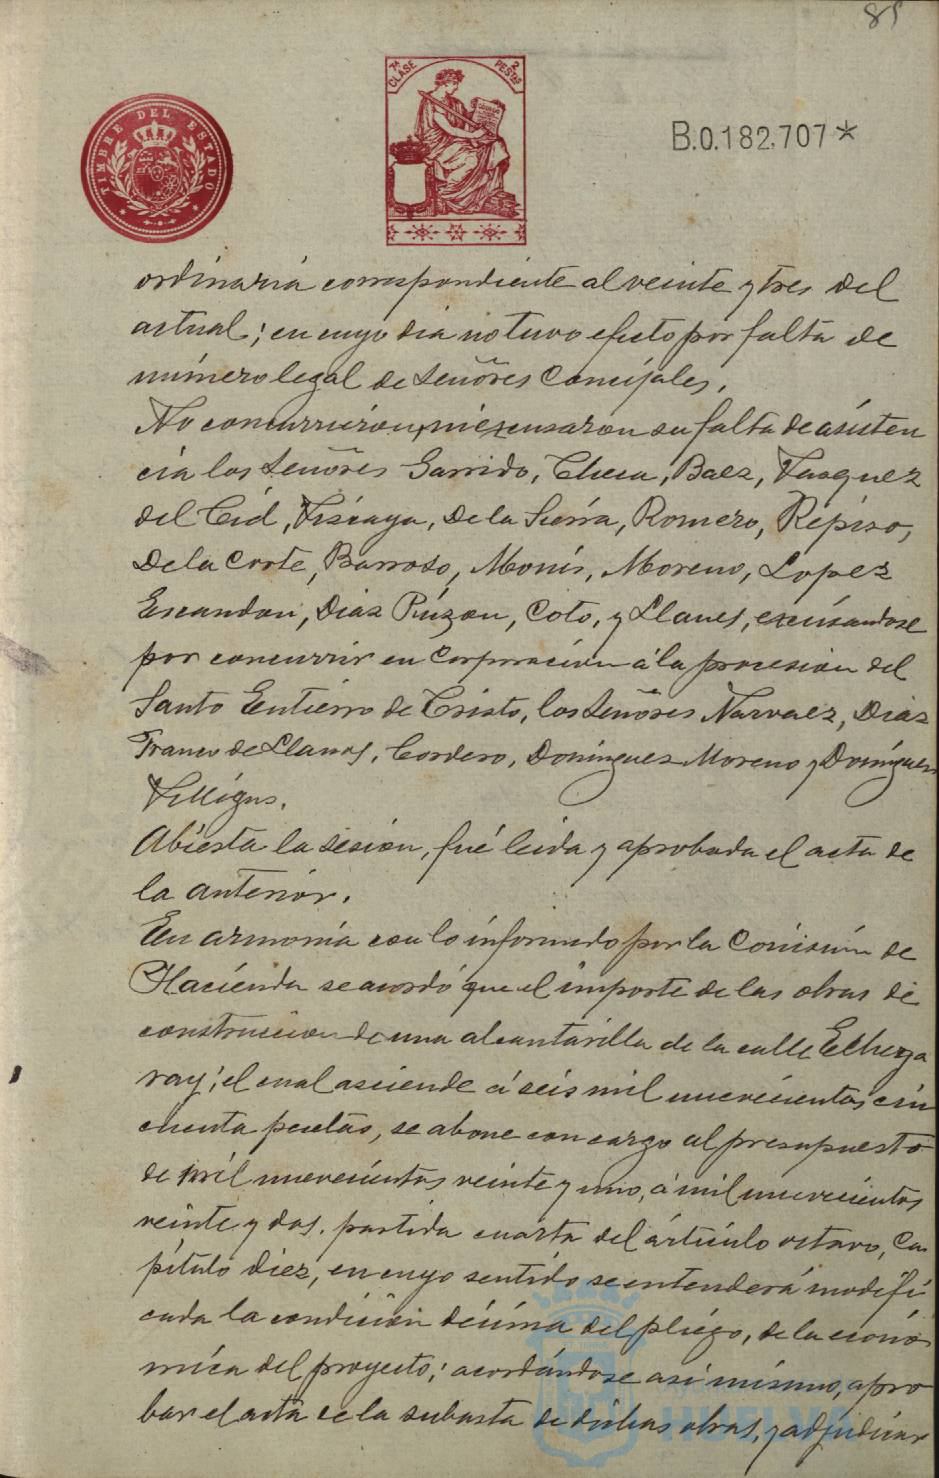 85
7ª CLASE 2 PESTAS
TIMBRE DEL ESTADO
B.0.182.707*
ordinaria correspondiente al veinte y tres del
actual; en cuyo dia no tuvo efecto por falta de
número legal de Señores Concejales.
No concurrieron, ni excusaron su falta de asisten
cia los Señores Garrido, Checa, Baez, Vazquez
del Cid, Viscaya, De la Sierra, Romero, Repiso,
De la Corte, Barroso, Monís, Moreno, Lopez
Escandon, Diaz Rúzon, Coto, y Llanes, excusandose
por concurrir en Corporacion á la procesion del
Santo Entierro de Cristo, los Señores Narvaez, Diaz
Franco de Llanos, Cordero, Domínguez Moreno y Domínguez
Villigus.
Abierta la sesion, fué leida y aprobada el acta de
la anteriór.
En armonia con lo informado por la Comision de
Hacienda se acordó que el importe de las obras de
construccion de una alcantarilla de la calle Echega
ray; el cual asciende á seis mil nuevecientas cin
cuenta pesetas, se abone con cargo al presupuesto
de mil nuevecientos veinte y uno, á mil nuevecientos
veinte y dos. partida cuarta del artículo octavo, Ca
pítulo diez, en cuyo sentido se entenderá modifi
cada la condicion décima del pliego, de la econó
mica del proyecto; acordándose asi mismo, apro
bar el acta de la subasta de dichas obras, y adjudicar
HUELVA